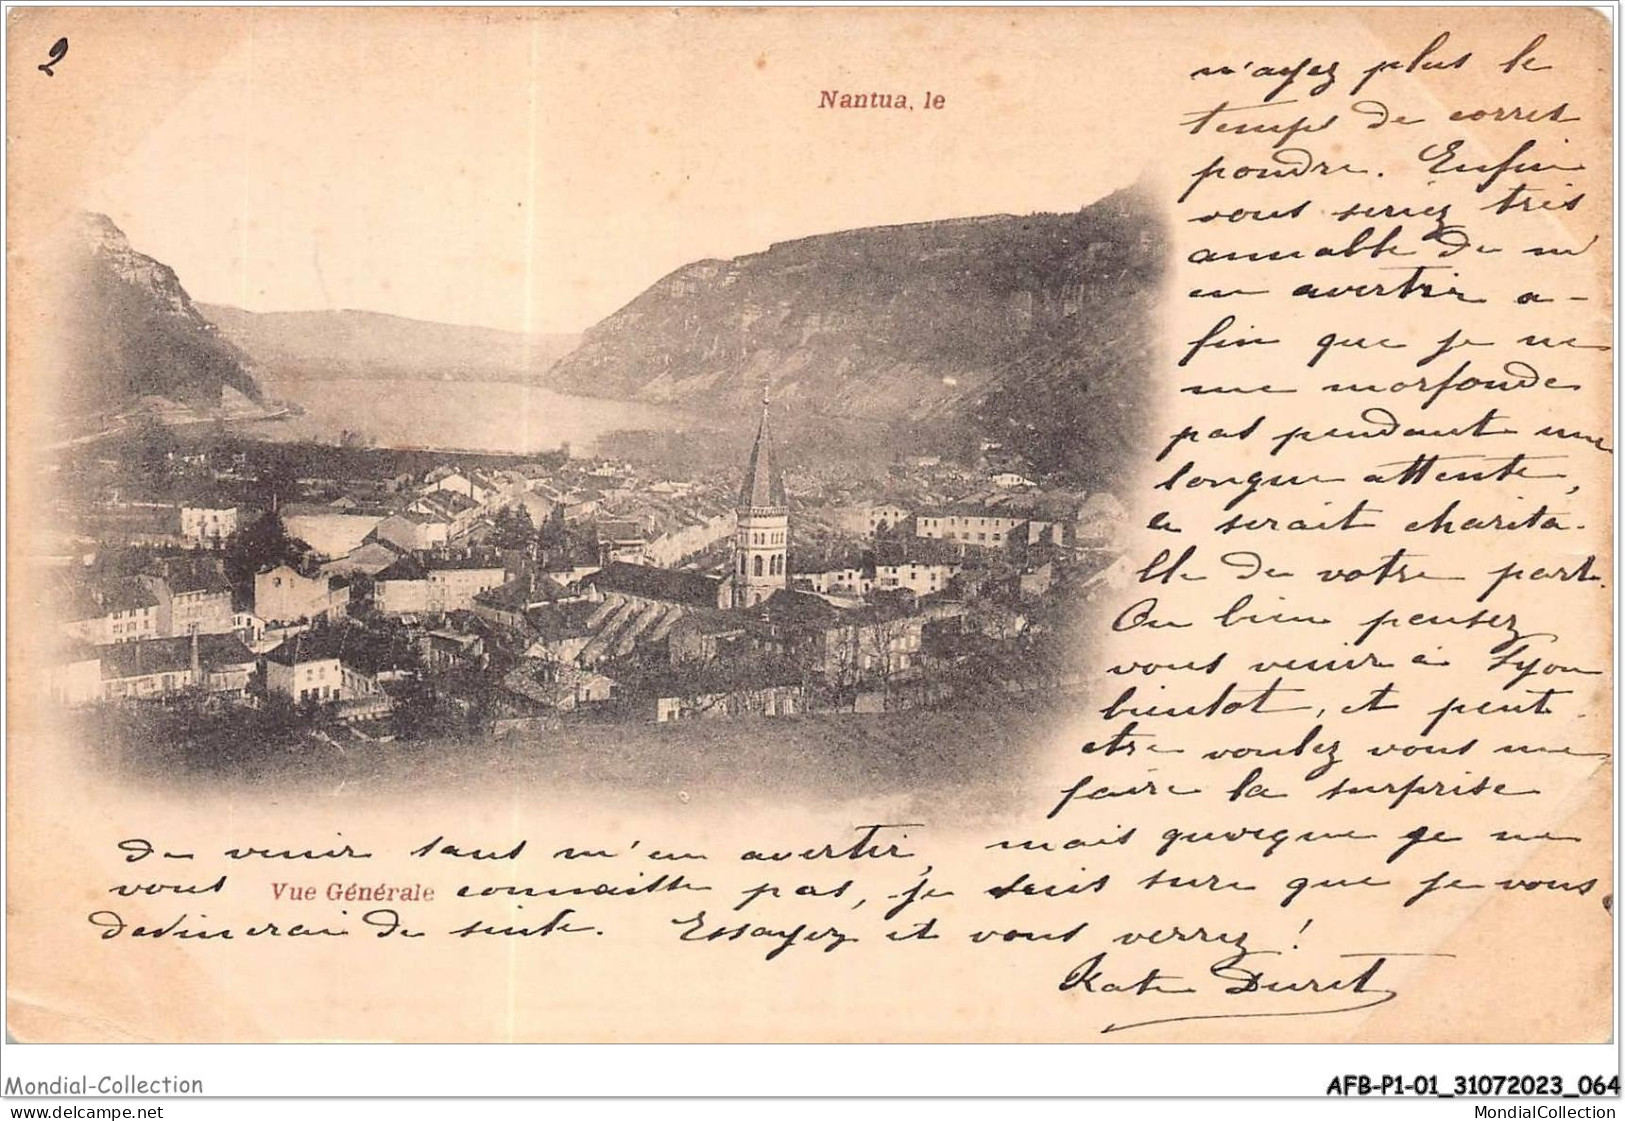 2
Nantua, le
n'ayez plus le
temps de corres
pondre. Enfin
vous seriez très
aimable de m'
en avertir a-
fin que je ne
me morfonde
pas pendant une
longue attente,
ce serait charita-
ble de votre part.
Ou bien pensez
vous venir à Lyon
bientot, et peut
etre voulez vous me
faire la surprise
de venir sans m'en avertir, mais quoique je ne
vous connaisse pas, je suis sure que je vous
Vue Générale
devinerai de suite. Essayez et vous verrez !
Kate Duret
Mondial-Collection
AFB-P1-01_31072023_064
www.delcampe.net
MondialCollection